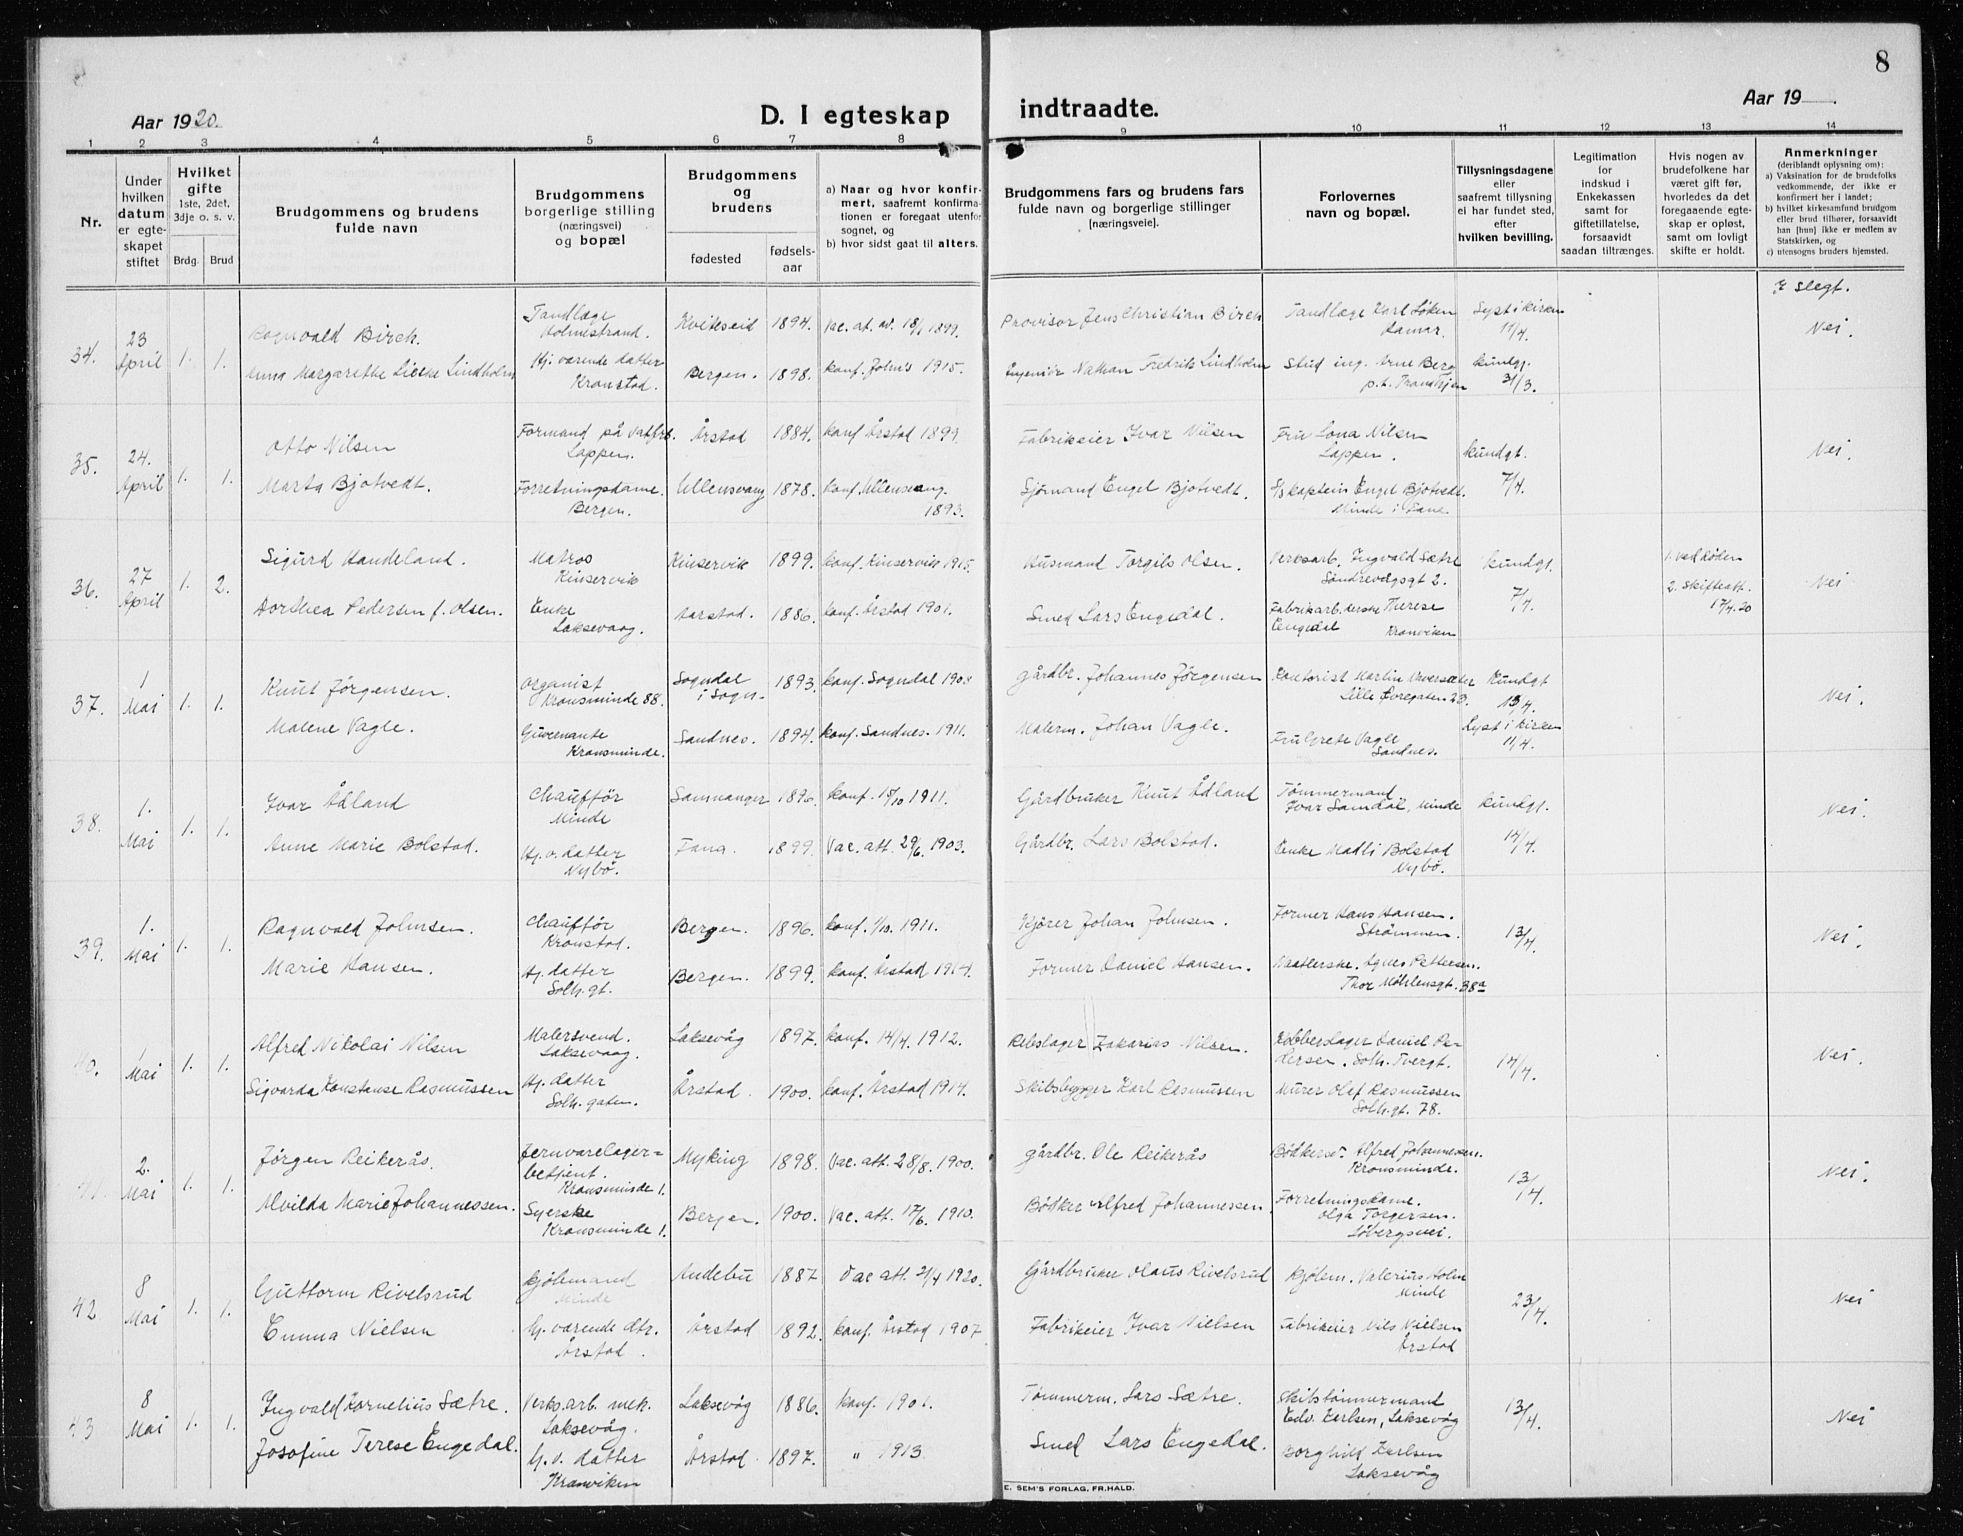 8
Aar 1920.
D. I egteskap indtraadte.
Aar 19
1 2 3 4 5 6 7 8 9 10 11 12 13 14
Nr.
Under hvilken datum er egteskapet stiftet
Hvilket gifte 1ste, 2det, 3dje o. s. v.
Brdg. Brud
Brudgommens og brudens fulde navn
Brudgommens borgerlige stilling (næringsvei) og bopæl
Brudgommens og brudens
fødested
fødselsaar
a) Naar og hvor konfirmert, saafremt konfirmationen er foregaat utenfor sognet, og
b) hvor sidst gaat til alters.
Brudgommens fars og brudens fars fulde navn og borgerlige stillinger [næringsveie].
Forlovernes navn og bopæl.
Tillysningsdagene eller saafremt tillysning ei har fundet sted, efter hvilken bevilling.
Legitimation for indskud i Enkekassen samt for giftetillatelse, forsaavidt saadan tiltrænges.
Hvis nogen av brudefolkene har været gift før, hvorledes da det foregaaende egteskap er opløst, samt om lovligt skifte er holdt.
Anmerkninger (deriblandt oplysning om): a) Vaksination for de brudefolks vedkommende, der ikke er konfirmert her i landet; b) hvilket kirkesamfund brudgom eller brud tilhører, forsaavidt han [hun] ikke er medlem av Statskirken, og c) utensogns bruders hjemsted.
I slegt.
34. 23 April 1. 1.
Ragnvald Birch. Tandlæge Holmestrand. Kviteseid 1894. Vac. at. av. 18/1 1899. Provisor Jens Christian Birch Tandlæge Karl Løken Hamar. Lyst i kirken 11/4. Nei.
Anna Margarethe Lindholm Hj. værende datter Kronstad. Bergen. 1898. konf. Johs 1915. Ingeniør Nathan Fredrik Lindholm Stud ing. Arne Berg p.t. Trondhjem kundgj. 31/3.
35. 24. April 1. 1.
Otto Nilsen Formand på Lappen. Årstad 1884. konf Årstad 1899. Fabrikeier Ivar Nilsen Fru Lona Nilsen Lappen. kundgt. 7/4. Nei.
Marta Bjotvedt. Forretningsdame. Bergen. Ullensvang 1878. konf. Ullensvang. 1893. Sjømand Engel Bjotvedt. S/skaptein Engel Bjotvedt. Minde i Fane
36. 27 April 1. 2.
Sigurd Handeland. Matros Kinservik Kinservik 1899. konf. Kinservik 1915. Husmand Torgils Olsen. Verksarb. Ingvald Sætre Søndrevolgsgt 2. kundgt. 7/4. 1. ved døden 2. Skifteatt. 17/4. 20 Nei
Dorthea Pedersen f. Olsen. Enke Laksevaag. Aarstad. 1886. konf. Årstad 1901. Smed Lars Engedal. Fabrikarb.derske Therese Engedal Kronviken
37. 1 Mai 1. 1.
Knut Jørgensen. Organist Kronsminde 88. Sogndal i Sogn. 1893. konf. Sogndal 1908 Gårdbr. Johannes Jørgensen Kontorist Martin Lille Øvregaten 23. kundgt 13/4. Nei.
Malene Vagle. Guvernante Kronsminde. Sandnes. 1894. konf. Sandnes. 1911. Malerm. Johan Vagle. Fru Grete Vagle Sandnes. Lyst i kirken 11/4.
38. 1. Mai 1. 1.
Ivar Ådland Chauffør Minde Samnanger 1896. konf. 15/10 1911. Gårdbruker Knut Ådland Tømmermand Ivar Samdal, Minde kundgt. 14/4. Nei.
Anne Marie Bolstad. Hj. v. datter Nybø. Fana. 1899. Vac. att. 29/6. 1903. Gårdbr. Lars Bolstad. Enke Madli Bolstad Nybø.
39. 1. Mai 1. 1.
Ragnvald Johnsen. Chauffør Kronstad. Bergen. 1896. konf. 1/10. 1911. Kjører Johan Johnsen. Former Hans Hansen. Strømmen. 13/4. Nei.
Marie Hansen. Hj. datter Solh. gt. Bergen. 1899. konf. Årstad 1914. Former Daniel Hansen. Agnes Pettersen. Thor Møhlensgt. 38a
40. 1 Mai 1. 1.
Alfred Nikolai Nilsen Malersvend. Laksevaag. Laksevåg 1897. konf. 14/4. 1912. Rebslager Zakarias Nilsen. Kobberslager Daniel Pedersen. Solh. Tvergt. 14/4. Nei.
Sigvarda Konstanse Rasmussen Hj. datter Solh. gaten. Årstad. 1900. konf. Årstad 1914. Skibsbygger Karl Rasmussen Murer Olaf Rasmussen Solh. gt. 78.
41. 2. Mai 1. 1.
Jørgen Reikerås. Jernvarelagerbetjent. Kronsminde 1. Myking 1898. Vac. att. 28/8. 1900. Gårdbr. Ole Reikerås Bødkersv. Alfred Johannessen. Kronsminde. 13/4. Nei.
Alvilda Marie Johannessen. Syerske Kronsminde 1. Bergen. 1900. Vac. att. 17/6. 1910. Bødker Alfred Johannessen. Forretningsdame. Olga Torgersen. Løbergsvei.
42 8 Mai 1. 1.
Guttorm Rivelsrud Kjøbmand Minde Andebu 1887 Vac att. 21/4 1920. Gårdbruker Olaus Rivelsrud Kjøbm. Valerius Holm Minde 23/4. Nei
Emma Nielsen Hj. værende dtr. Årstad. Årstad 1892. konf. Årstad 1907 Fabrikeier Ivar Nielsen Fabrikeier Nils Nielsen Årstad
43 8 Mai 1. 1.
Ingvald Kornelius Sætre. Verks.arb. mek. Laksevåg. Laksevåg 1886. konf. 1901. Tømmerm. Lars Sætre. Skibstømmermand Edv. Karlsen, Laksevåg 13/4. Nei
Josofine Terese Engedal. Hj. v. datter Kronviken Årstad. 1897. " 1913 Smed Lars Engedal. Borghild Karlsen Laksevåg
E. SEM'S FORLAG, FR.HALD.